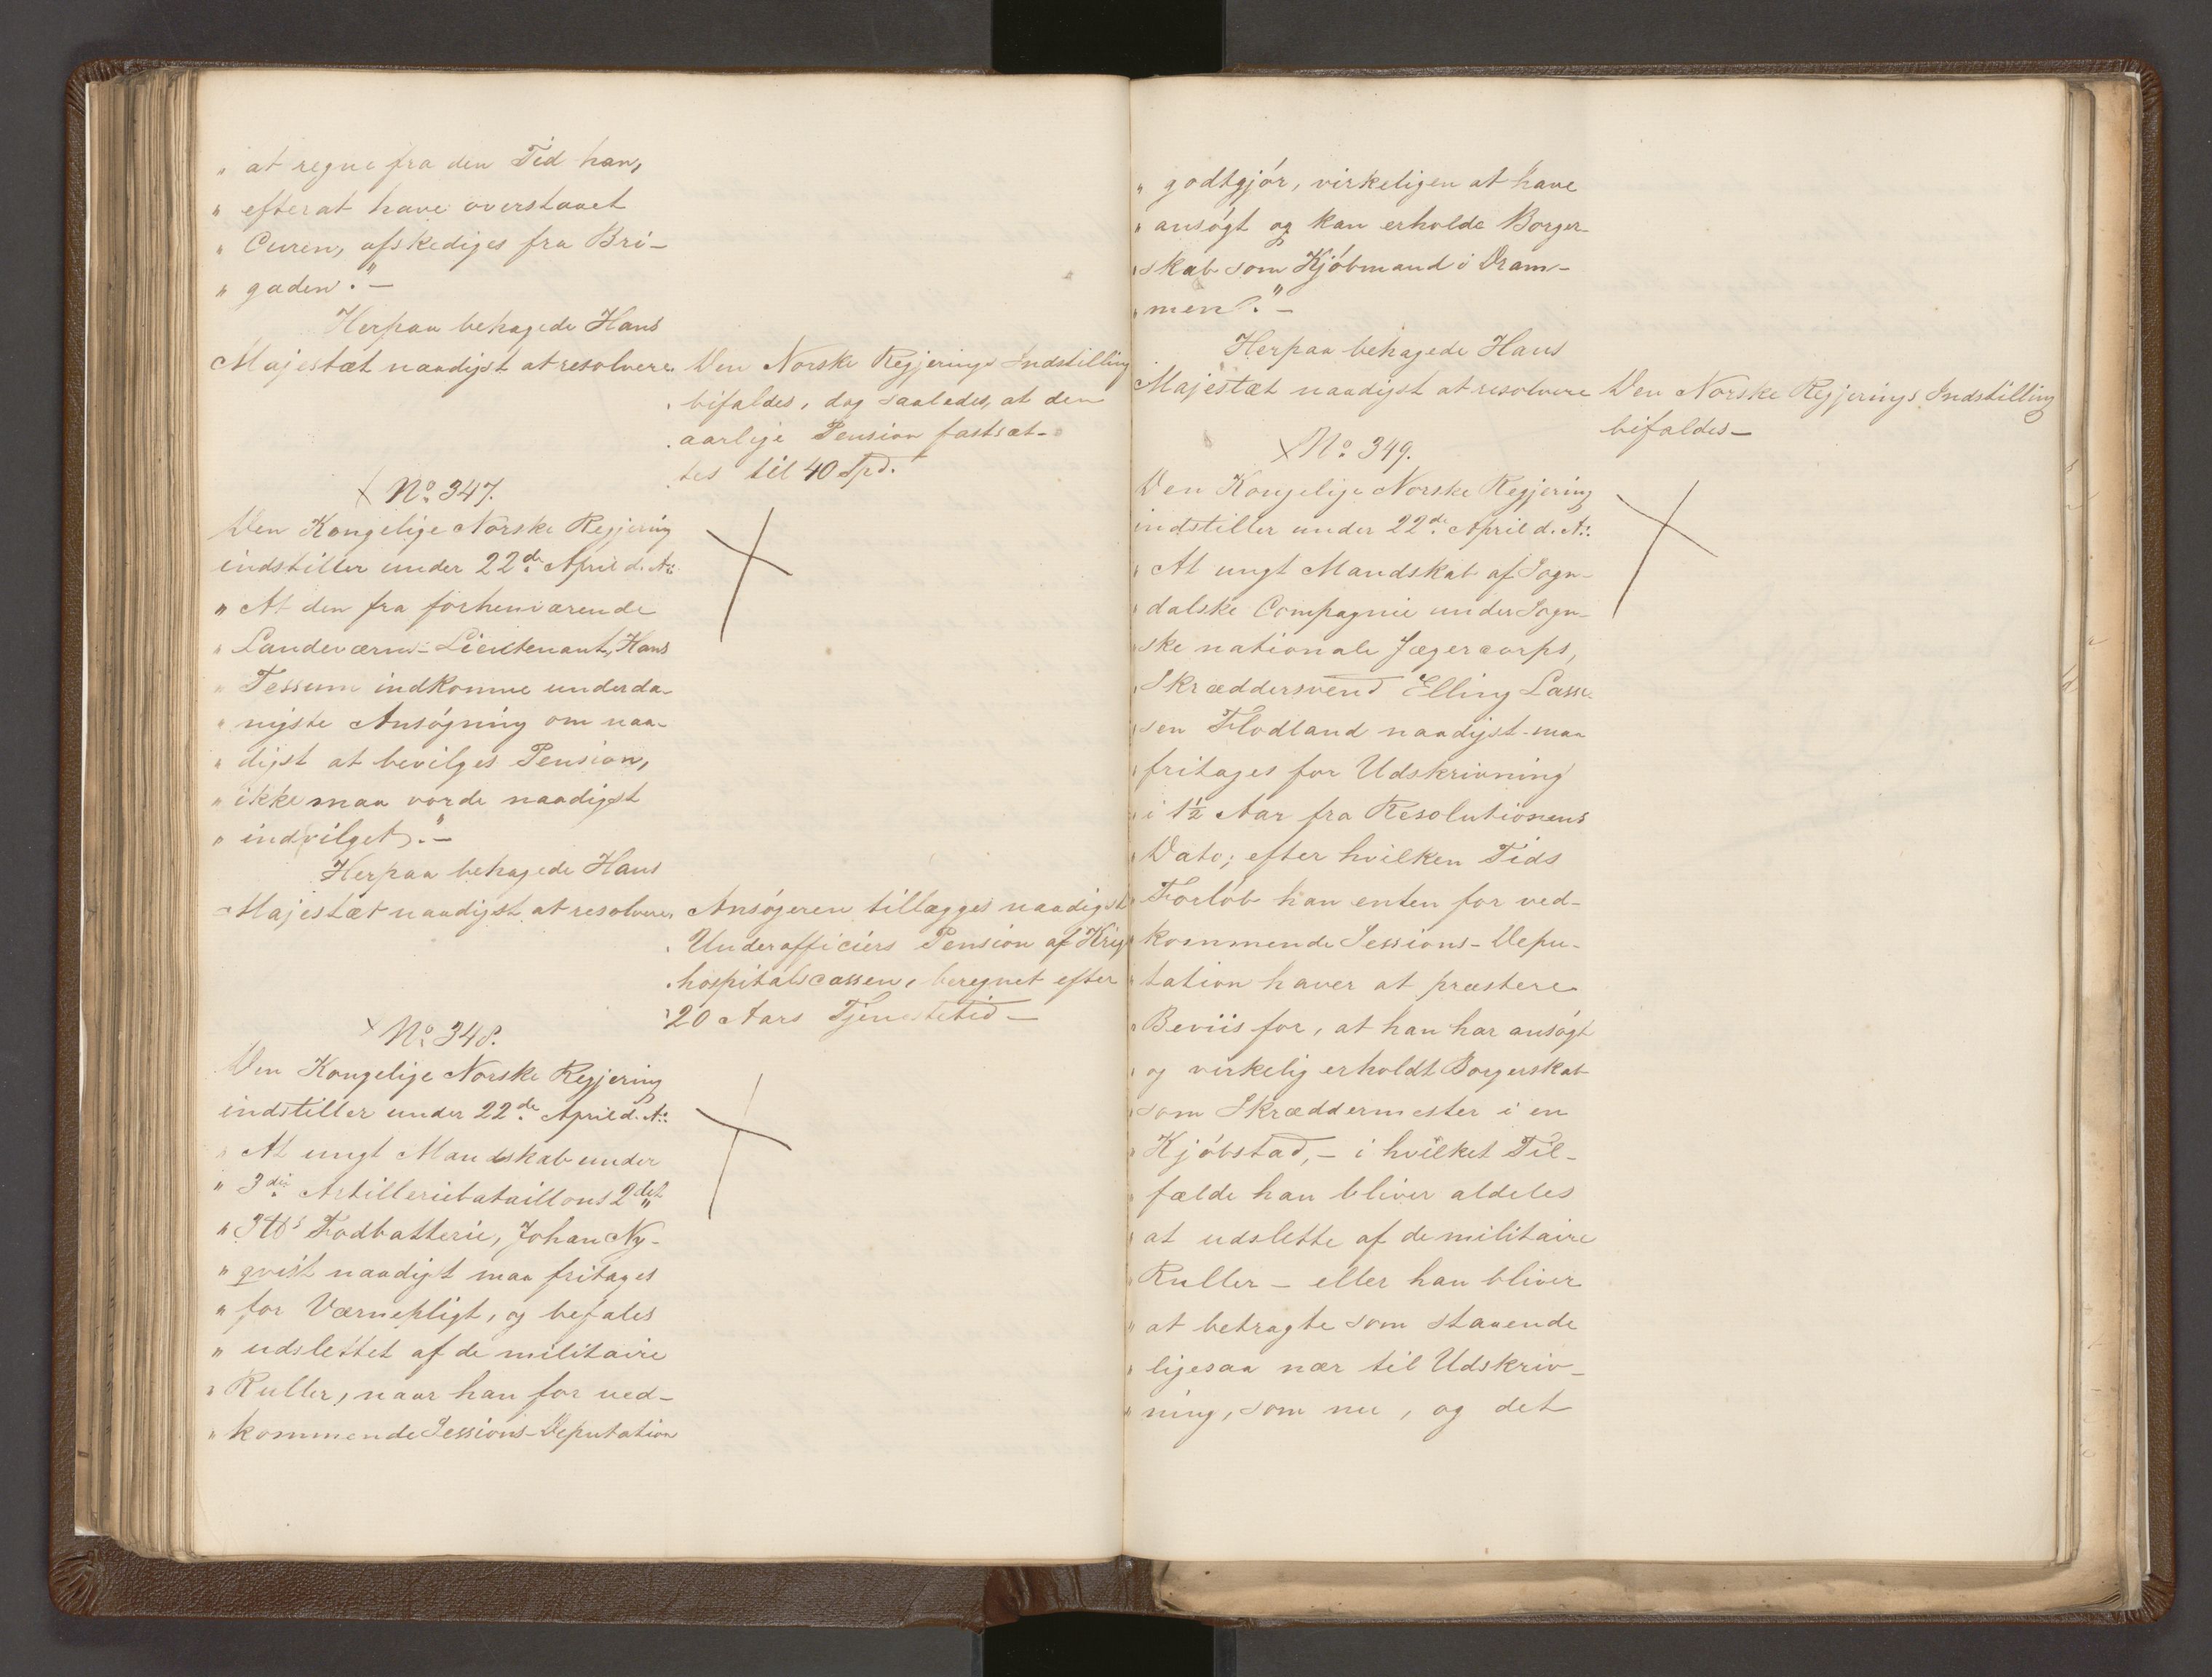 " at regne fra den Tid han,
" efterat have overstaaet
" Curen, afskediges fra Bri-
" gaden". -
Herpaa behagede Hans
Majestæt naadigst at resolvere.
Den Norske Regjerings Indstilling
bifaldes, dog saaledes, at den
aarlige Pension fastsæt-
tes til 40 Spd.
No. 347.
Den Kongelige Norske Regjering
indstiller under 22de April d. A:
" At den fra forhenværende
" Landeværns-Lieutenant, Hans
" Tessum indkomne underda-
" nigste Ansøgning om naa-
" digst at bevilges Pension,
" ikke maa vorde naadigst
" indvilget". -
Herpaa behagede Hans
Majestæt naadigst at resolvere,
Ansøgeren tillægges naadigst
Underofficiers Pension af Krigs
hospitalscassen, beregnet efter
20 Aars Tjenestetid -
No. 348.
Den Kongelige Norske Regjering
indstiller under 22de April d. A:
" At ungt Mandskab under
" 3die Artilleriebataillons 2det
" 3 ℔s Fodbatterie, Johan Ny-
" qvist naadigst maa fritages
" for Værnepligt, og befales
" udslettet af de militaire
" Ruller, naar han for ved-
" kommende Sessions-Deputation
" godtgjør, virkeligen at have
" ansøgt og kan erholde Borger-
" skab som Kjøbmand i Dram-
" men". -
Herpaa behagede Hans
Majestæt naadigst at resolvere
Den Norske Regjerings Indstilling
bifaldes -
No. 349.
Den Kongelige Norske Regjering
indstiller under 22de April d. A:
" At ungt Mandskab af Sogn-
" dalske Compagnie under Sogn-
" ske nationale Jægercorps,
" Skræddersvend Elling Lasse-
" sen Flodland naadigst maa
" fritages for Udskrivning
" i 1½ Aar fra Resolutionens
" Dato; efter hvilken Tids
" Forløb han enten for ved-
" kommende Sessions-Depu-
" tation haver at præstere
" Beviis for, at han har ansøgt
" og virkelig erholdt Borgerskab
" som Skræddermester i en
" Kjøbstad, - i hvilket Til-
" fælde han bliver aldeles
" at udslette af de militaire
" Ruller - eller han bliver
" at betragte som staaende
" ligesaa nær til Udskriv-
" ning, som nu, og det